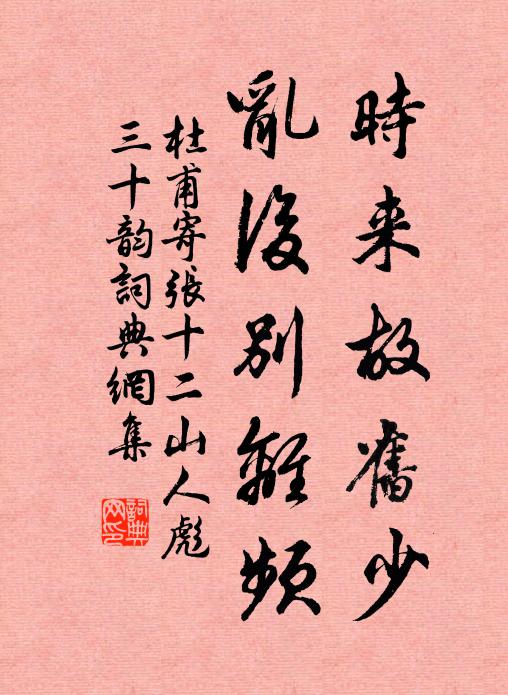 時来故舊少
亂後別離頻
杜甫寄張十二山人彪
三十韵詞典網集
詞典
网印